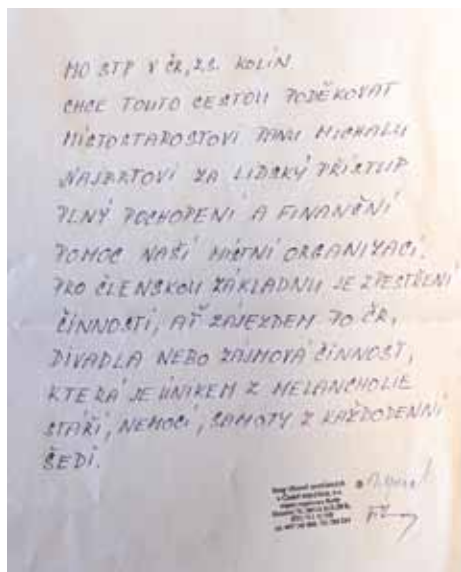 MO STP V ČR, Z.S. KOLÍN
CHCE TOUTO CESTOU PODĚKOVAT
MÍSTOSTAROSTOVI PANU MICHALU
NAJBRTOVI ZA LIDSKÝ PŘÍSTUP
PLNÝ POCHOPENÍ A FINANČNÍ
POMOC NAŠÍ MÍSTNÍ ORGANIZACI.
PRO ČLENSKOU ZÁKLADNU JE ZPESTŘENÍ
ČINNOSTI, AŤ ZÁJEZDEM PO ČR,
DIVADLA NEBO ZÁJMOVÁ ČINNOST,
KTERÁ JE ÚNIKEM Z MELANCHOLIE
STÁŘÍ, NEMOCÍ, SAMOTY Z KAŽDODENNÍ
ŠEDI.